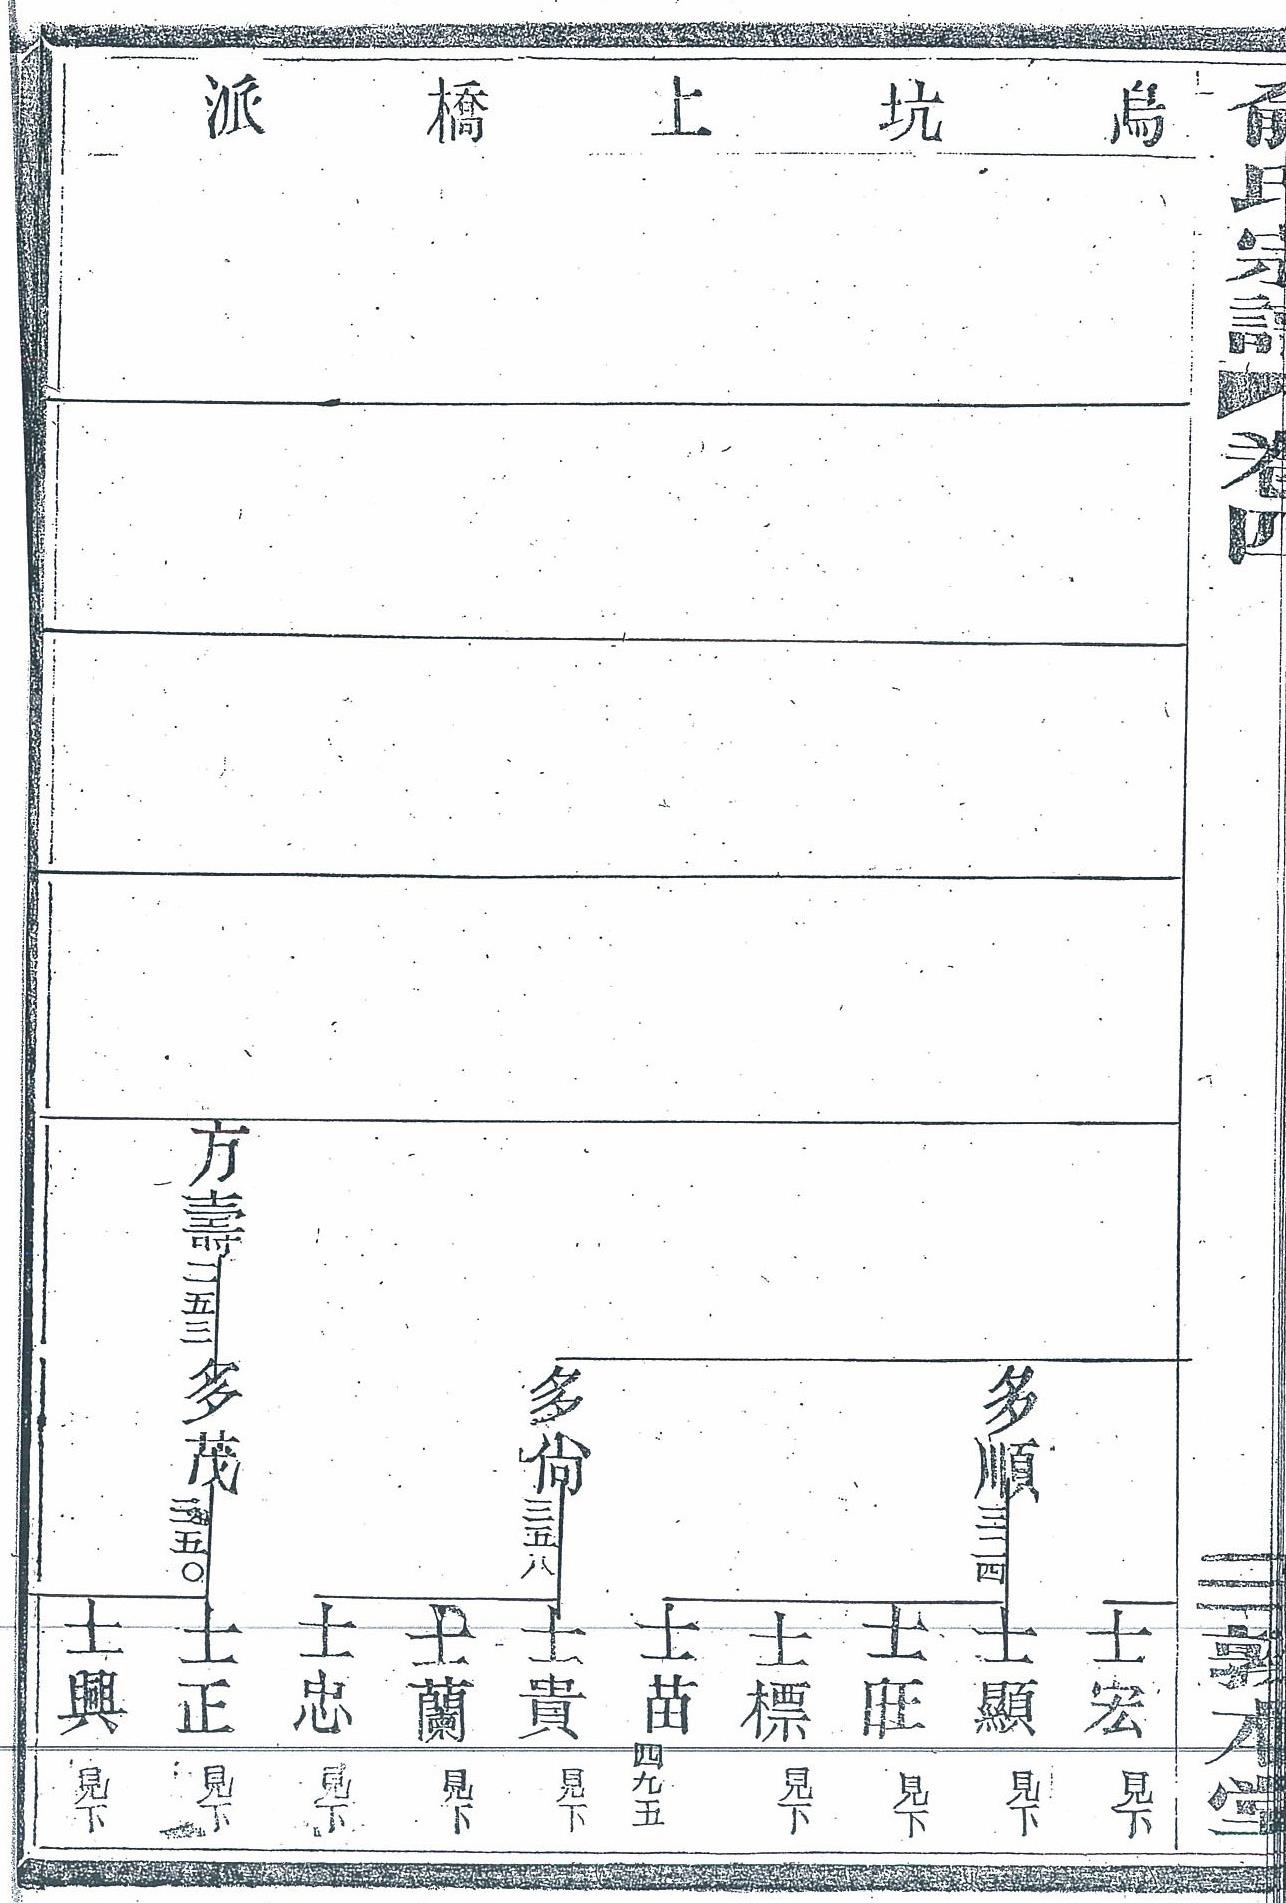 俞氏宗譜 卷四
三 敦本堂
烏坑上橋派
士宏 見下
多順 三二四
士顯 見下
士旺 見下
士標 見下
士苗 四九五
多尙 三五八
士貴 見下
士蘭 見下
士忠 見下
方壽 二五三
多茂 五〇
士正 見下
士興 見下